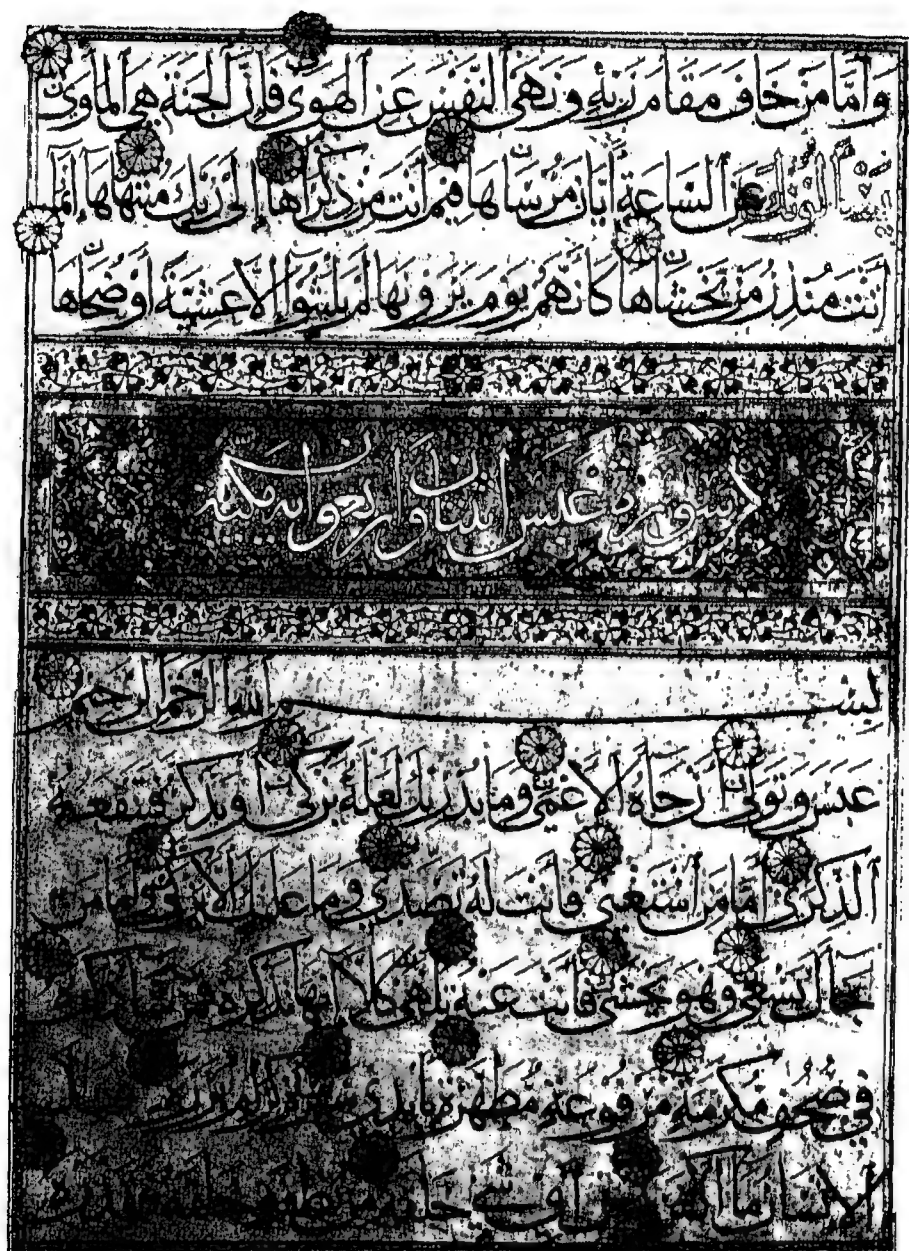 وَأَمَّا مَنْ خَافَ مَقَامَ رَبِّهِ وَنَهَى النَّفْسَ عَنِ الْهَوَى فَإِنَّ الْجَنَّةَ هِيَ الْمَأْوَى
عَنِ السَّاعَةِ أَيَّانَ مُرْسَاهَا فِيمَ أَنْتَ مِنْ ذِكْرَاهَا إِلَى رَبِّكَ مُنْتَهَاهَا إِنَّمَا
أَنْتَ مُنْذِرُ مَنْ يَخْشَاهَا كَأَنَّهُمْ يَوْمَ يَرَوْنَهَا لَمْ يَلْبَثُوا إِلَّا عَشِيَّةً أَوْ ضُحَاهَا
سورة عبس اثنتان واربعون اية مكية
بِسْمِ اللَّهِ الرَّحْمَنِ الرَّحِيمِ
عَبَسَ وَتَوَلَّى أَنْ جَاءَهُ الْأَعْمَى وَمَا يُدْرِيكَ لَعَلَّهُ يَزَّكَّى أَوْ يَذَّكَّرُ فَتَنْفَعَهُ
الذِّكْرَى أَمَّا مَنِ اسْتَغْنَى فَأَنْتَ لَهُ تَصَدَّى وَمَا عَلَيْكَ أَلَّا يَزَّكَّى وَأَمَّا مَنْ
جَاءَكَ يَسْعَى وَهُوَ يَخْشَى فَأَنْتَ عَنْهُ تَلَهَّى كَلَّا إِنَّهَا تَذْكِرَةٌ فَمَنْ شَاءَ ذَكَرَهُ
فِي صُحُفٍ مُكَرَّمَةٍ مَرْفُوعَةٍ مُطَهَّرَةٍ بِأَيْدِي سَفَرَةٍ كِرَامٍ بَرَرَةٍ
الْإِنْسَانُ مَا أَكْفَرَهُ مِنْ أَيِّ شَيْءٍ خَلَقَهُ مِنْ نُطْفَةٍ خَلَقَهُ فَقَدَّرَهُ